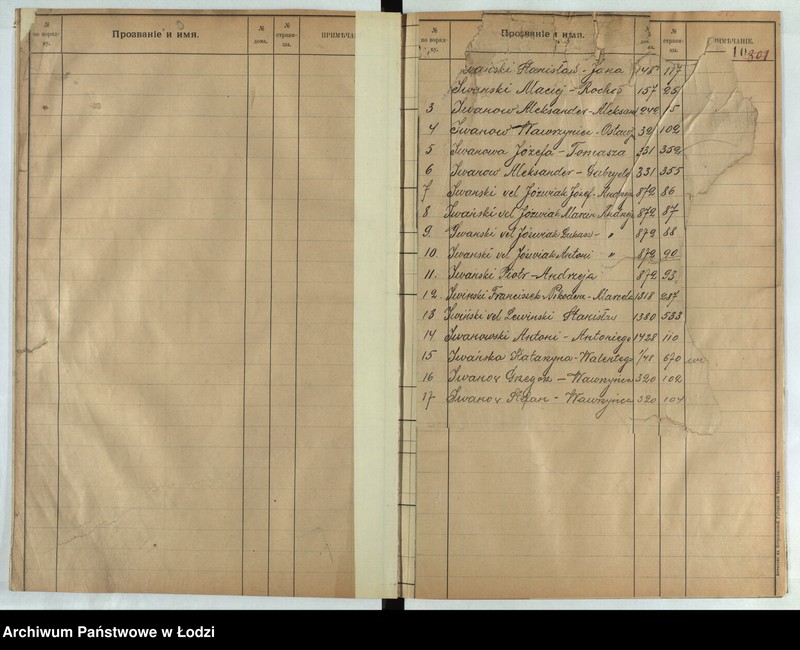 № по поряд- ку. Прозваніе и имя. № дома. № страни- цы. ПРИМѢЧА
№ по поряд- ку. Прозваніе и имя. № страни- цы. РИМѢЧАНІЕ.
301
wański Stanisław - Jana 145 117
Iwanski Maciej - Rocha 157 25
3 Iwanow Aleksander - Aleksan 242 15
4 Iwanow Wawrzyniec - 32 102
5 Iwanowa Józefa - Tomasza 331 352
6 Iwanow Aleksander - Gabryela 331 355
7 Iwanski vel Jóźwiak Józef - Andrzeja 872 86
8 Iwański vel Jóźwiak Marcin Andrzej 872 87
9. Iwanski vel Jóźwiak Łukasz - " 872 88
10. Iwanski vel Jóźwiak Antoni " 872 90
11. Iwanski Piotr - Andrzeja 872 93
12. Iwinski Franciszek Nikodem - Marcela 1318 237
13 Iwiński vel Lewinski Stanisław 1380 533
14 Iwanowski Antoni - Antoniego 1428 110
15 Iwańska Katarzyna - Walentego 670
16 Iwanow Grzegorz - Wawrzyńca 320 102
17 Iwanow Stefan - Wawrzyńca 320 104
Archiwum Państwowe w Łodzi